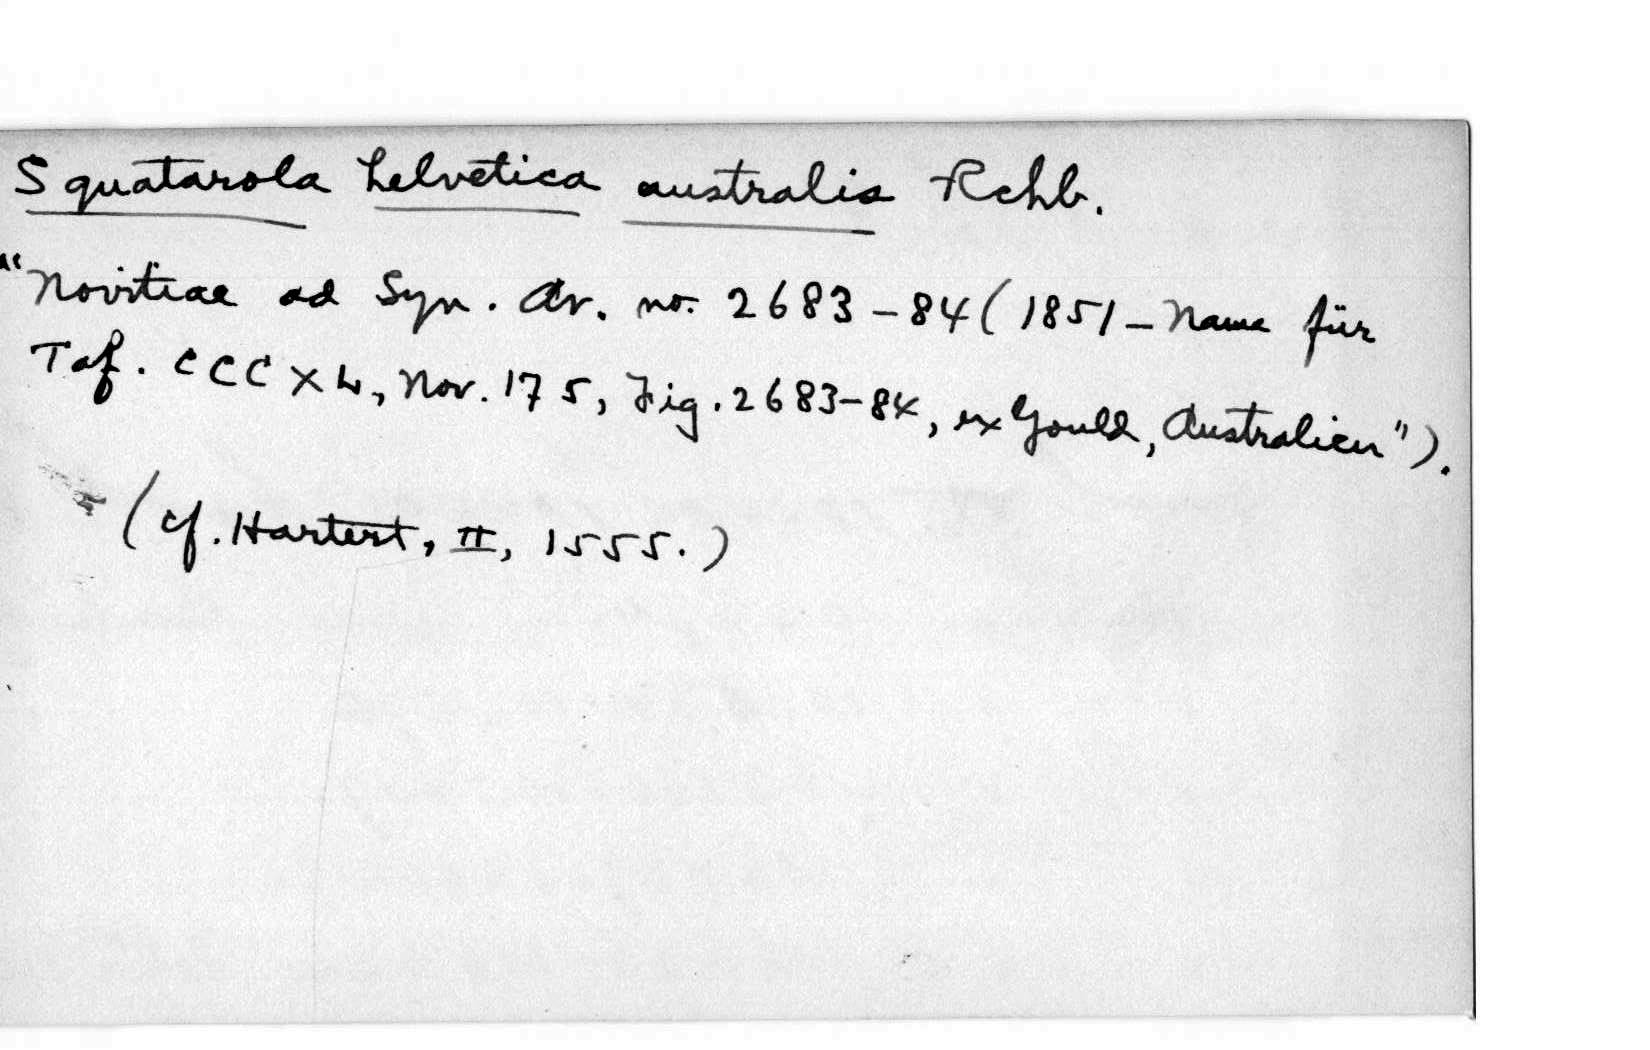 Squatarola helvetica australis Rchb.
"Novitiae ad Syn. Av. no. 2683-84 (1851 - Name für
Taf. CCCXL, Nov. 175, Fig. 2683-84, ex Gould, Australien").
(cf. Hartert, II, 1555.)